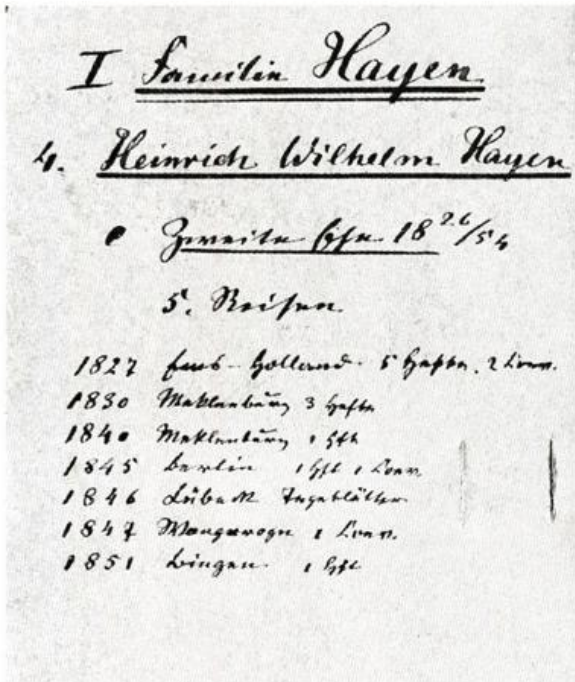 I Familie Hayen
4. Heinrich Wilhelm Hayen
Zweite Ehe 18 26/54
5. Reisen
1827 Ems - Holland 5 Hefte. 2
1830 Meklenburg 3 Hefte
1840 Meklenburg 1 Hft
1845 Berlin 1 Hft 1
1846 Lübeck Tageblätter
1847 Wangeroge 1
1851 Bingen 1 Hft